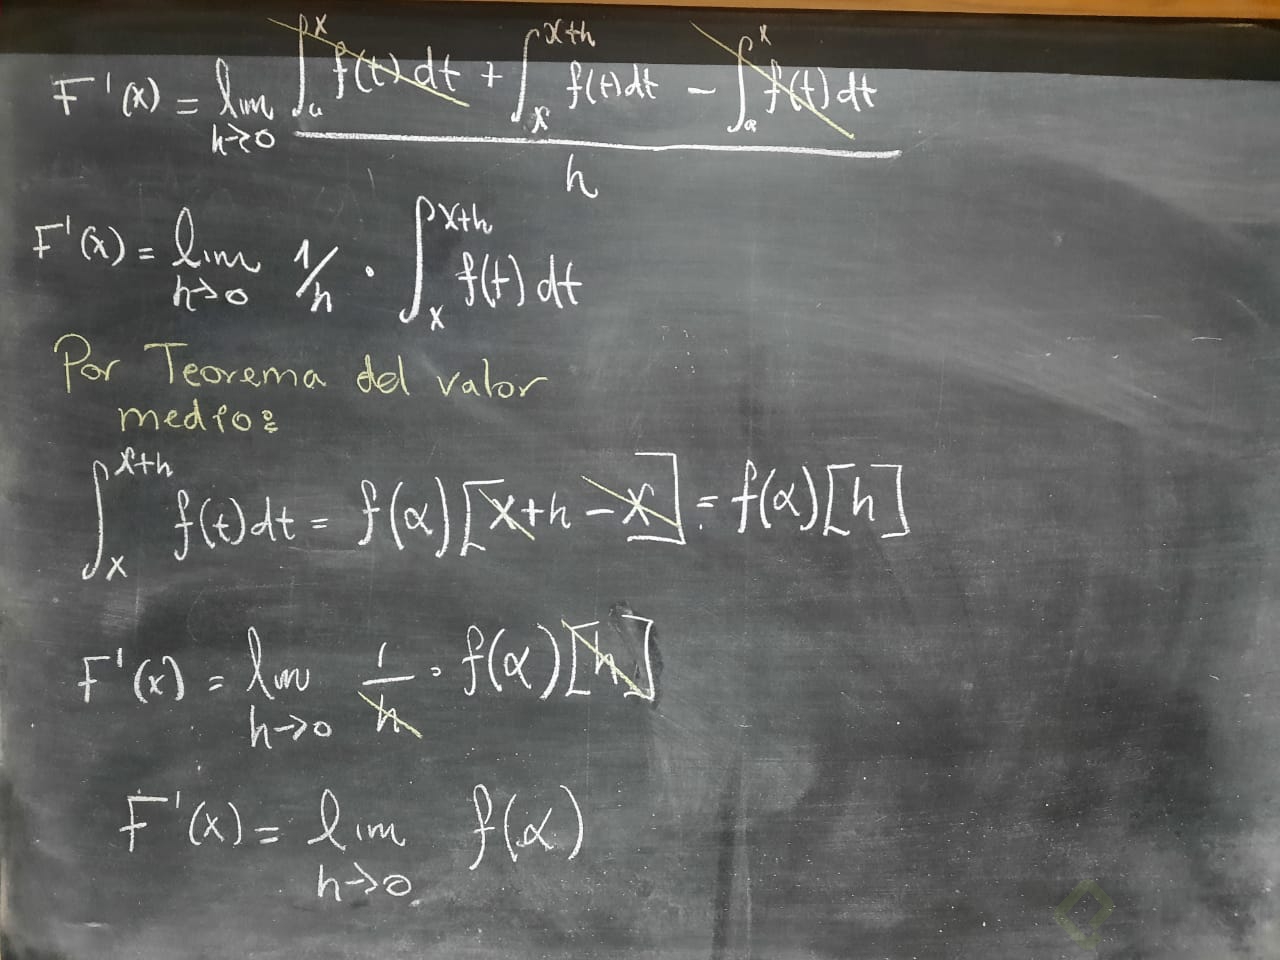 F'(x) = lim h→0 (∫_a^x f(t) dt + ∫_x^{x+h} f(t) dt - ∫_a^x f(t) dt) / h
F'(x) = lim h→0 1/h · ∫_x^{x+h} f(t) dt
Por Teorema del valor
medio:
∫_x^{x+h} f(t) dt = f(α) [x+h - x] = f(α) [h]
F'(x) = lim h→0 1/h · f(α) [h]
F'(x) = lim h→0 f(α)